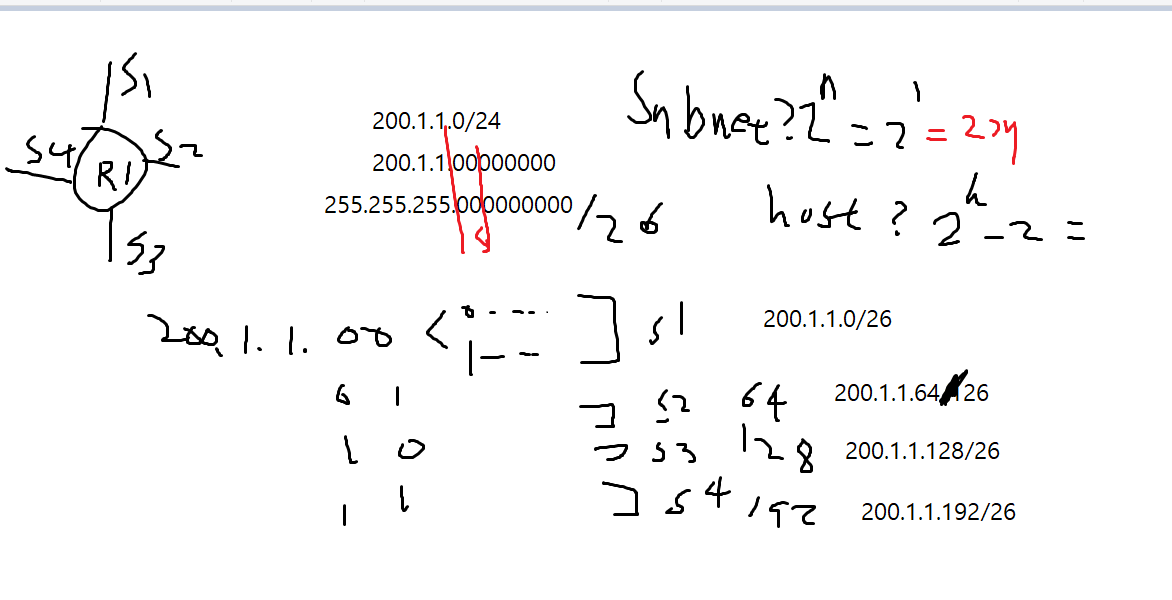 S1
S4
S2
R1
S3
200.1.1.0/24
200.1.1.00000000
255.255.255.000000000 /26
S
Subnet? 2^n = 2^1 =
host? 2^h - 2 =
200.1.1.00 < 0 - - - - ] S1 200.1.1.0/26
1 - -
0 1 ] S2 64 200.1.1.64/26
1 0 ] S3 128 200.1.1.128/26
1 1 ] S4 192 200.1.1.192/26